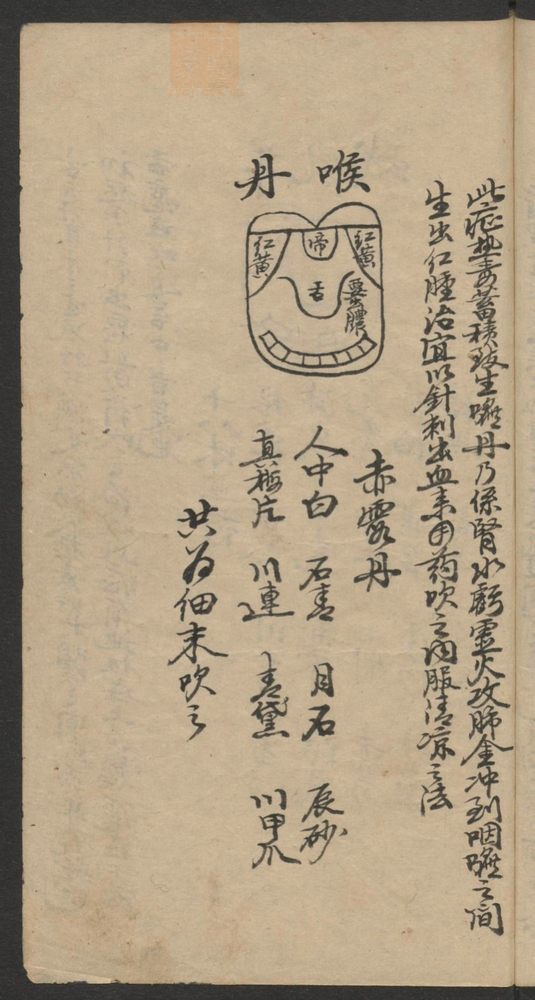 此症熱毒蓄積致生喉丹乃係腎水虧靈火攻肺金冲到咽喉之間
生出仁腫治宜以針刺出血来用药吹之内服清凉之法
喉丹
紅黄
帝
紅黄
舌
要膿
赤霞丹
人中白 石青 月石 辰砂
真梅片 川連 青黛 川甲爪
共为细末吹之